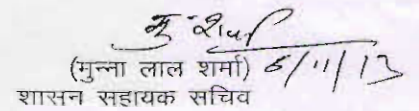 (मुन्ना लाल शर्मा) 6/11/13
शासन सहायक सचिव